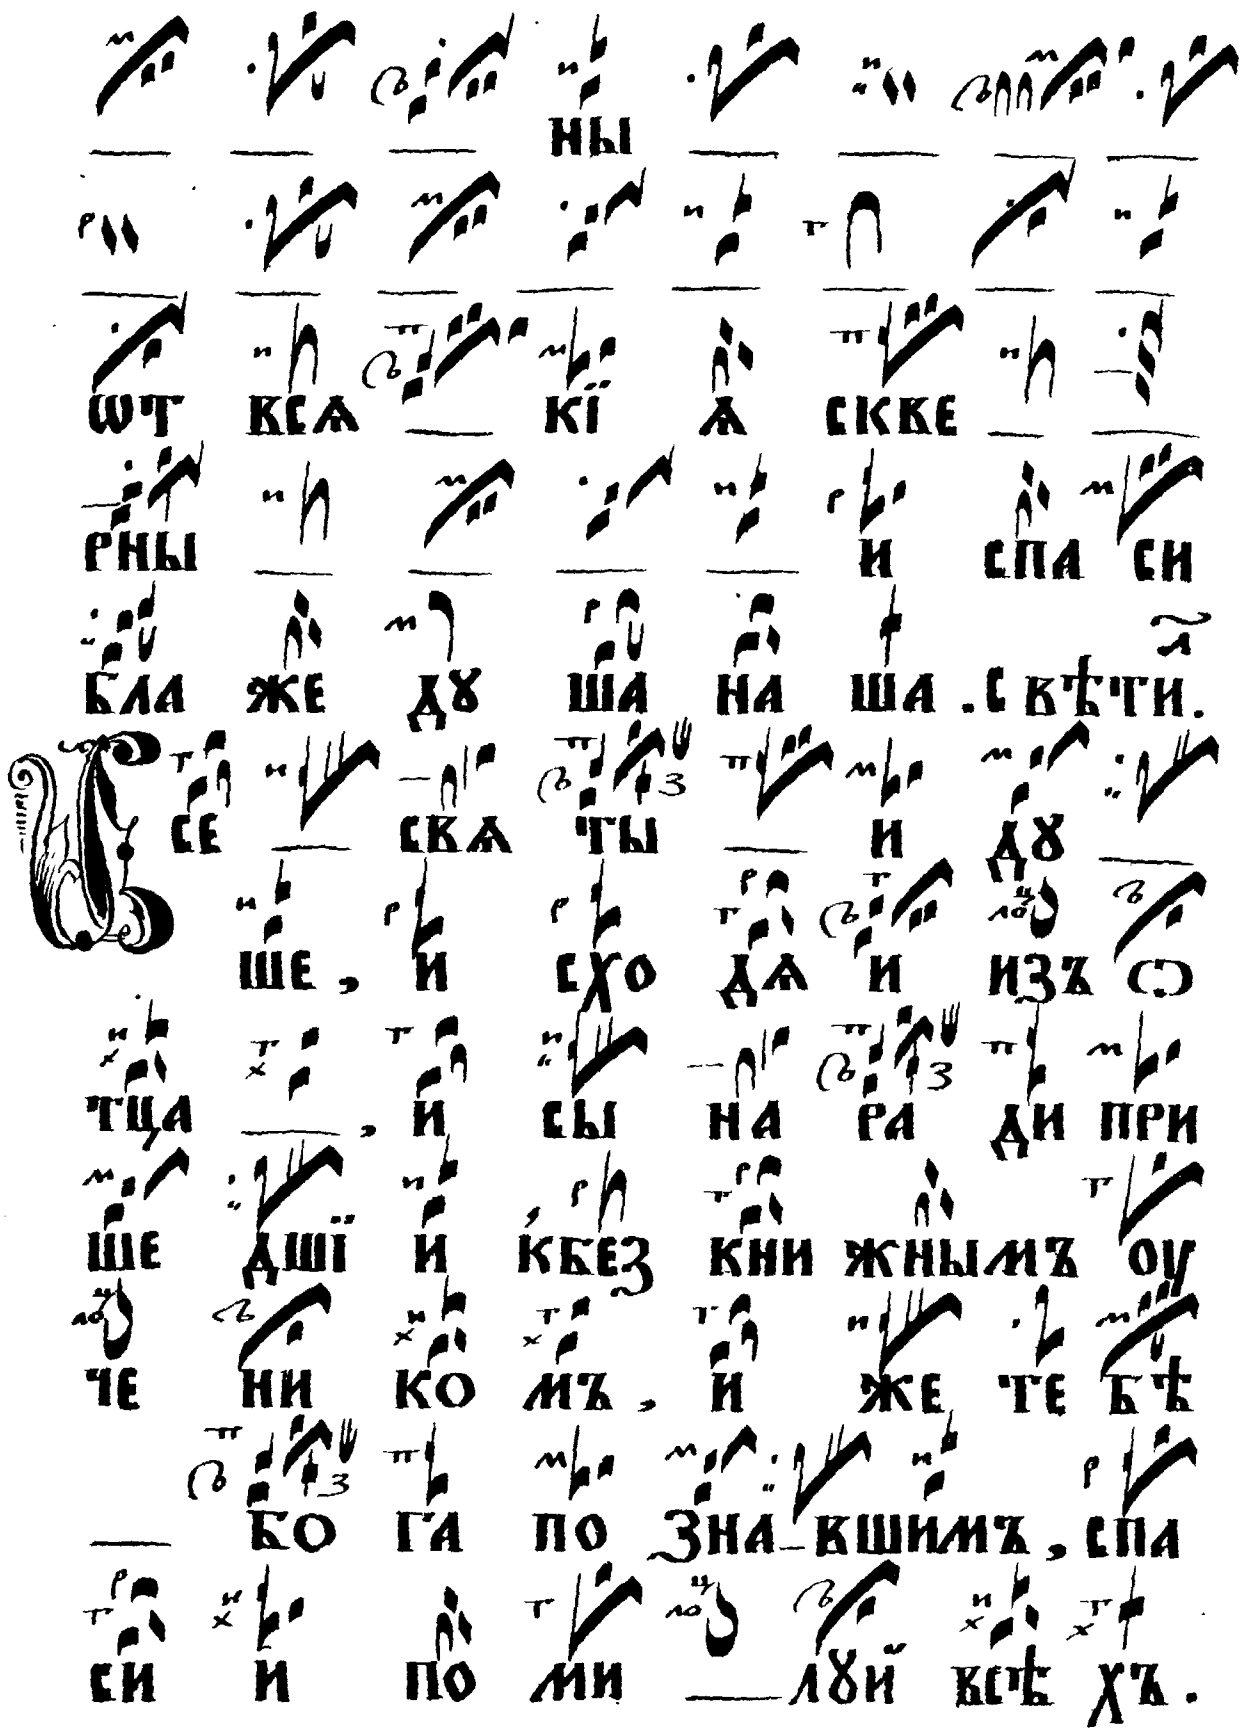 ны
ѿт вся кї ѧ скве
рны и спа си
бла же дꙋ ша на ша . с вѣти̃л .
В се свѧ ты и дꙋ
ше , и схо дѧ и изъ ѡ
тца , и сы на ра ди при
ше дшї и к̓без кни жнымъ оу
че ни ко мъ , и же те бѣ
бо га по зна вшимъ , спа
си й по ми лꙋй всѣ хъ .